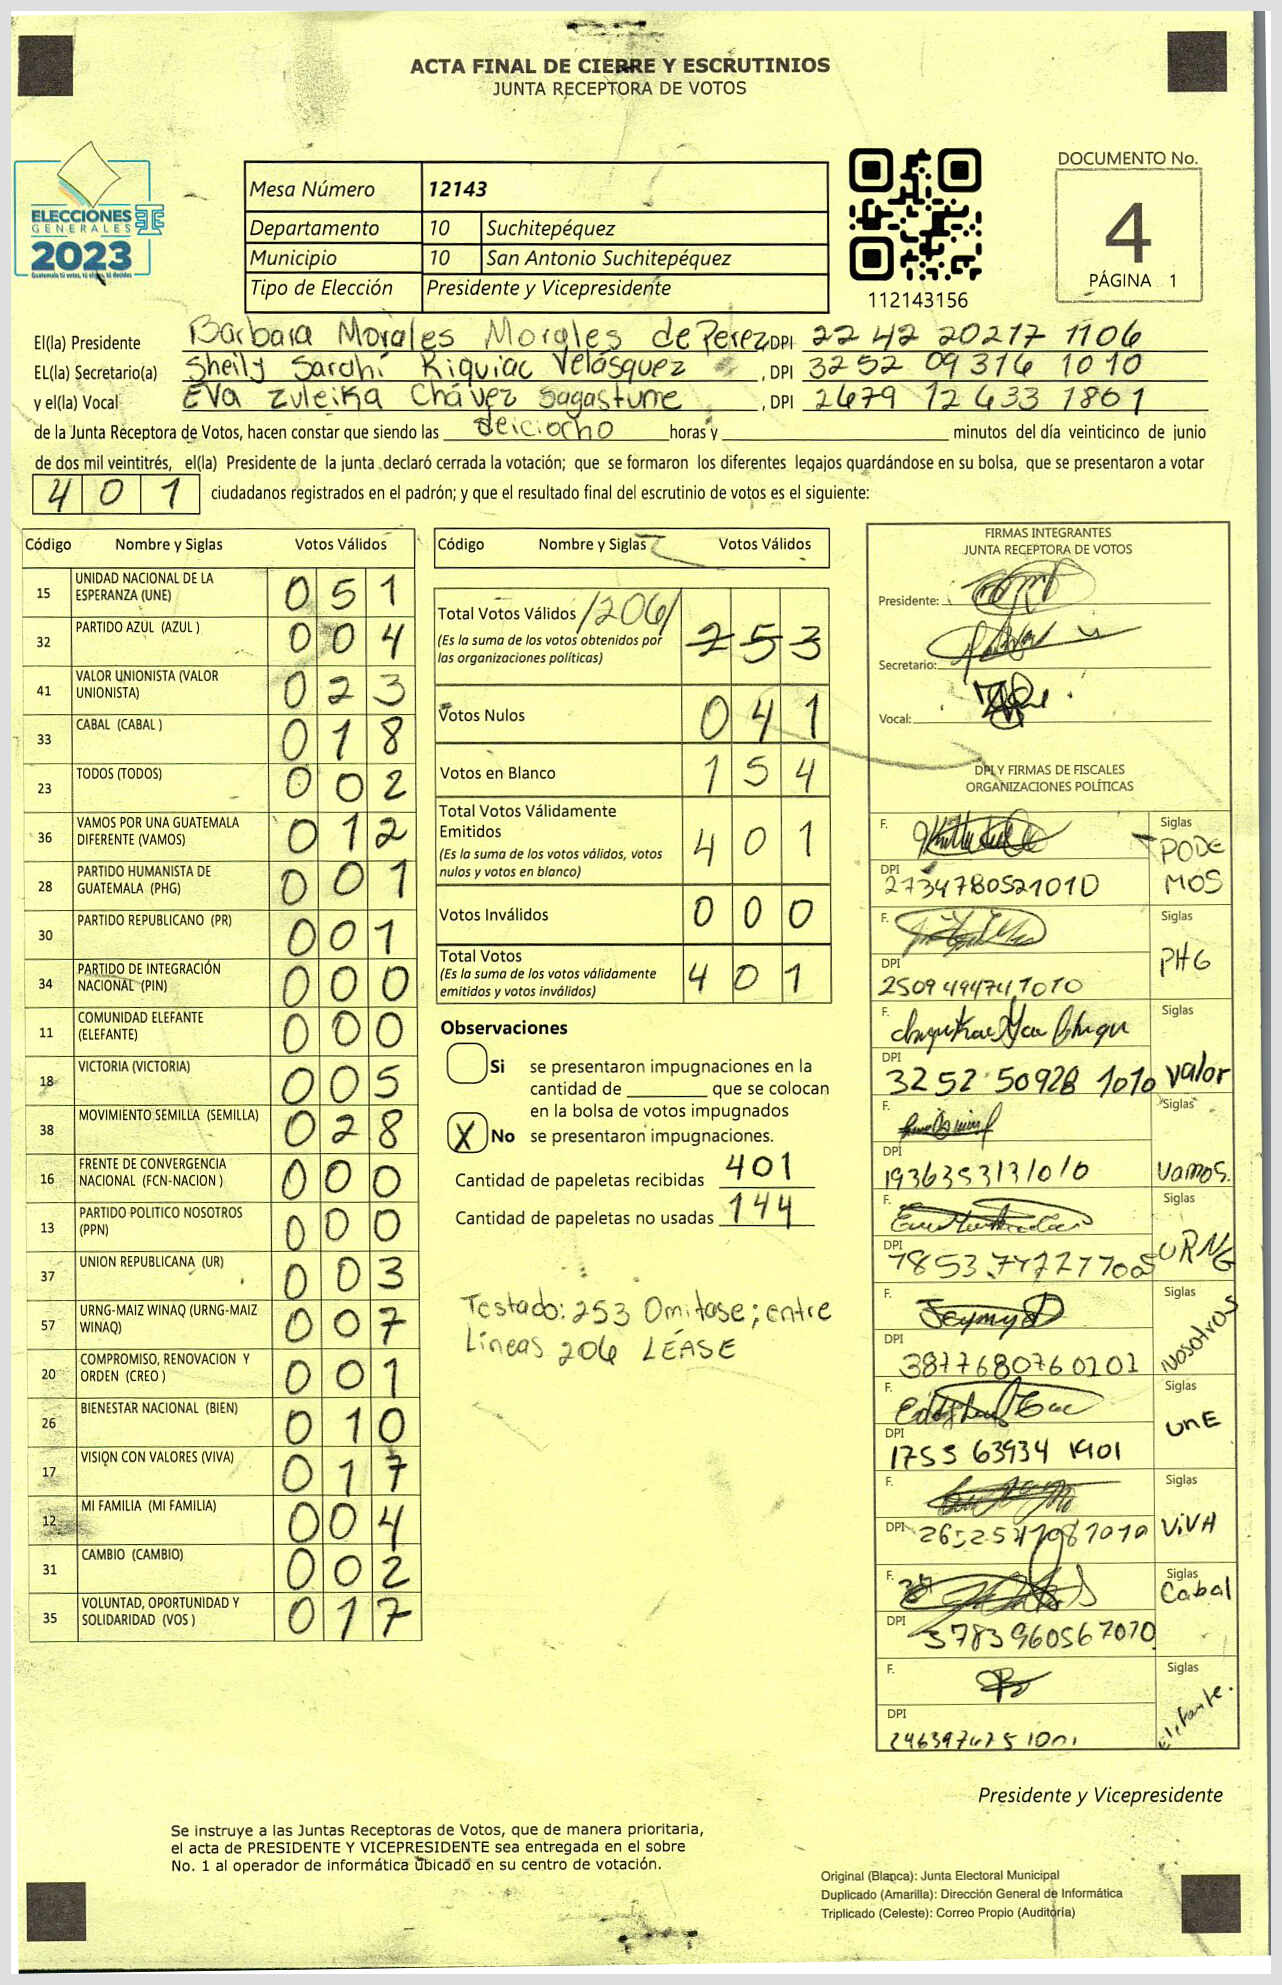 ACTA FINAL DE CIERRE Y ESCRUTINIOS
JUNTA RECEPTORA DE VOTOS
ELECCIONES
GENERALES
2023
Guatemala tú votas, tú eliges, tú decides
Mesa Número 12143
Departamento 10 Suchitepéquez
Municipio 10 San Antonio Suchitepéquez
Tipo de Elección Presidente y Vicepresidente
112143156
DOCUMENTO No.
4
PÁGINA 1
El(la) Presidente Barbara Morales Morales de Perez, DPI 2242 20217 1106
EL(la) Secretario(a) Sheily Sarahí Riquiac Velásquez, DPI 3252 09316 1010
y el(la) Vocal Eva Zuleika Chávez Sagastume, DPI 2679 12633 1801
de la Junta Receptora de Votos, hacen constar que siendo las deiciocho horas y minutos del día veinticinco de junio
de dos mil veintitrés, el(la) Presidente de la junta declaró cerrada la votación; que se formaron los diferentes legajos guardándose en su bolsa, que se presentaron a votar
401 ciudadanos registrados en el padrón; y que el resultado final del escrutinio de votos es el siguiente:
Código Nombre y Siglas Votos Válidos
15 UNIDAD NACIONAL DE LA ESPERANZA (UNE) 051
32 PARTIDO AZUL (AZUL ) 004
41 VALOR UNIONISTA (VALOR UNIONISTA) 023
33 CABAL (CABAL ) 018
23 TODOS (TODOS) 002
36 VAMOS POR UNA GUATEMALA DIFERENTE (VAMOS) 012
28 PARTIDO HUMANISTA DE GUATEMALA (PHG) 001
30 PARTIDO REPUBLICANO (PR) 001
34 PARTIDO DE INTEGRACIÓN NACIONAL (PIN) 000
11 COMUNIDAD ELEFANTE (ELEFANTE) 000
18 VICTORIA (VICTORIA) 005
38 MOVIMIENTO SEMILLA (SEMILLA) 028
16 FRENTE DE CONVERGENCIA NACIONAL (FCN-NACION ) 000
13 PARTIDO POLITICO NOSOTROS (PPN) 000
37 UNION REPUBLICANA (UR) 003
57 URNG-MAIZ WINAQ (URNG-MAIZ WINAQ) 007
20 COMPROMISO, RENOVACION Y ORDEN (CREO ) 001
26 BIENESTAR NACIONAL (BIEN) 010
17 VISION CON VALORES (VIVA) 017
12 MI FAMILIA (MI FAMILIA) 004
31 CAMBIO (CAMBIO) 002
35 VOLUNTAD, OPORTUNIDAD Y SOLIDARIDAD (VOS ) 017
Código Nombre y Siglas Votos Válidos
Total Votos Válidos /206/ 253
(Es la suma de los votos obtenidos por
las organizaciones políticas)
Votos Nulos 041
Votos en Blanco 154
Total Votos Válidamente
Emitidos 401
(Es la suma de los votos válidos, votos
nulos y votos en blanco)
Votos Inválidos 000
Total Votos 401
(Es la suma de los votos válidamente
emitidos y votos inválidos)
Observaciones
Si se presentaron impugnaciones en la
cantidad de ________ que se colocan
en la bolsa de votos impugnados
X No se presentaron impugnaciones.
Cantidad de papeletas recibidas 401
Cantidad de papeletas no usadas 144
Testado: 253 Omitase; entre
Lineas 206 LÉASE
FIRMAS INTEGRANTES
JUNTA RECEPTORA DE VOTOS
Presidente:
Secretario:
Vocal:
DPI Y FIRMAS DE FISCALES
ORGANIZACIONES POLÍTICAS
F. Siglas PODEMOS
DPI 2734780521010
F. Siglas PHG
DPI 2509494741010
F. Siglas Valor
DPI 3252 50928 1010
F. Siglas Vamos.
DPI 1936353131010
F. Siglas URNG
DPI
F. Siglas Nosotros
DPI 3877680760101
F. Siglas UnE
DPI 1755 63934 1901
F. Siglas ViVA
DPI
F. Siglas Cabal
DPI 3783960561010
F. Siglas Elefante.
DPI
Presidente y Vicepresidente
Se instruye a las Juntas Receptoras de Votos, que de manera prioritaria,
el acta de PRESIDENTE Y VICEPRESIDENTE sea entregada en el sobre
No. 1 al operador de informática ubicado en su centro de votación.
Original (Blanca): Junta Electoral Municipal
Duplicado (Amarilla): Dirección General de Informática
Triplicado (Celeste): Correo Propio (Auditoría)